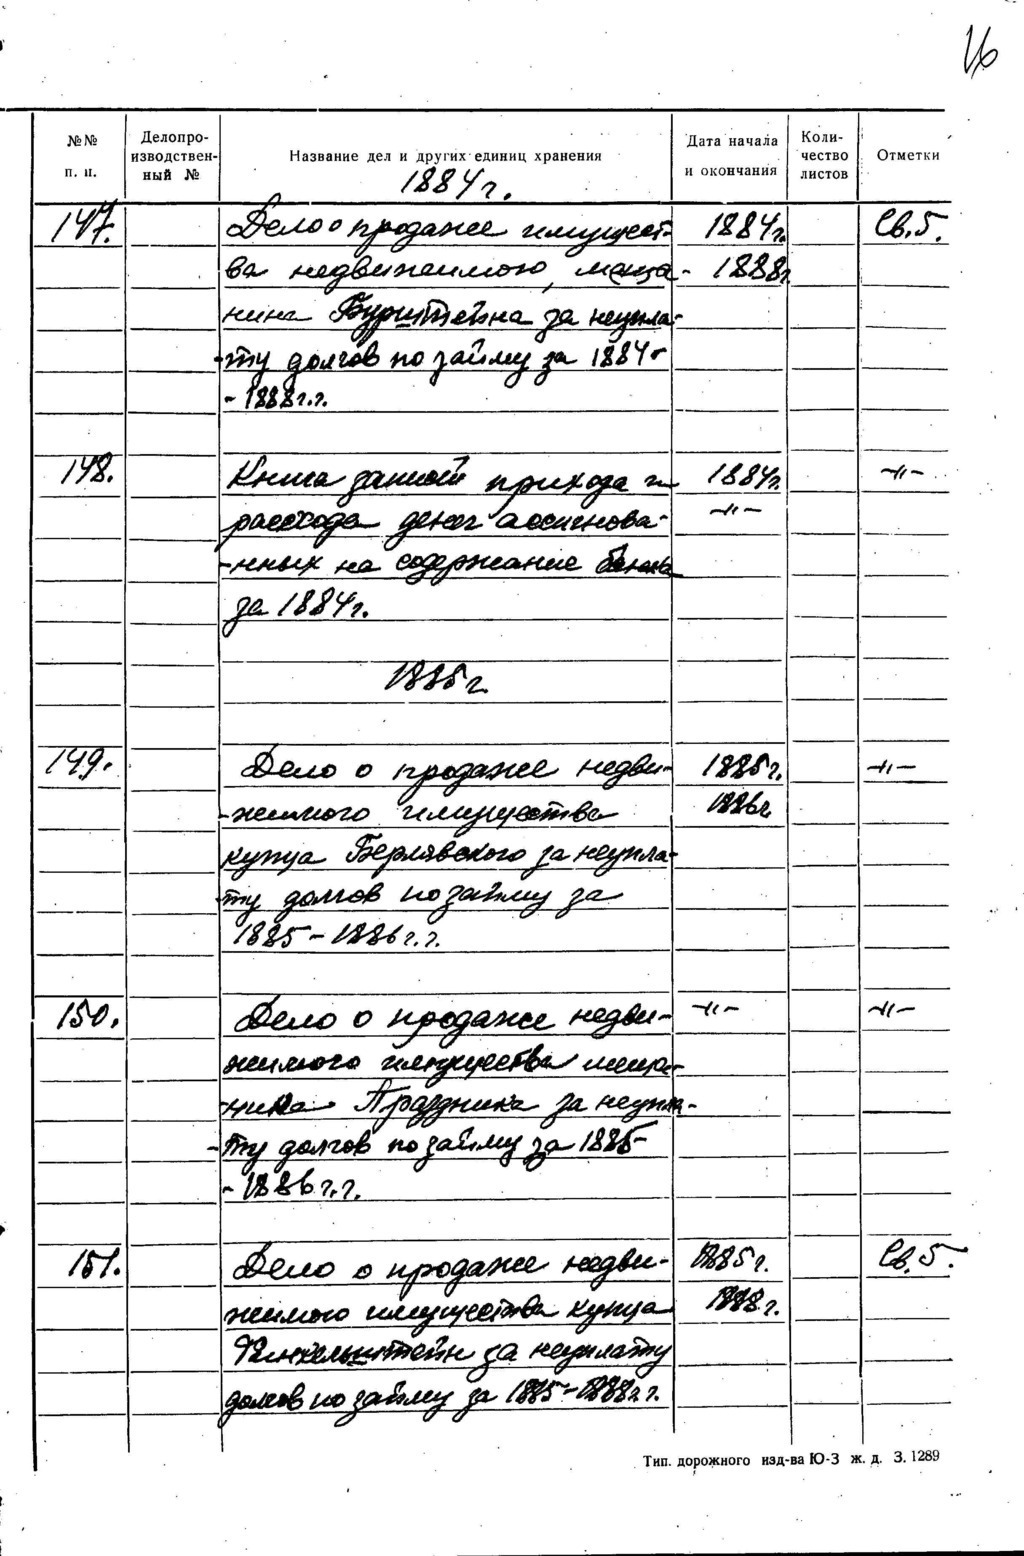 16
№№ п. п. Делопроизводственный № Название дел и других единиц хранения Дата начала и окончания Количество листов Отметки
1884г.
147. Дело о продаже имущест- 1884г. Св.5.
ва недвижимого, меща - 1888г
нина Бурштейна за неупла-
-ту долгов по займу за 1884-
- 1888г.г.
148. Книга записи прихода и 1884г. -"-
расхода денег ассигнова- -"-
-нных на содержание банка
за 1884г.
1885г.
149. Дело о продаже недви- 1885г. -"-
-жимого имущества 1886г
купца Берлявского за неупла-
-ту долгов по займу за
1885-1886г.г.
150. Дело о продаже недви- -"- -"-
жимого имущества меща-
-нина Праздника за неупла-
-ту долгов по займу за 1885-
- 1886г.г.
151. Дело о продаже недви- 1885г. Св.5.
жимого имущества купца 1888г.
Финкельштейн за неуплату
долгов по займу за 1885-1888г.г.
Тип. дорожного изд-ва Ю-З ж. д. З. 1289